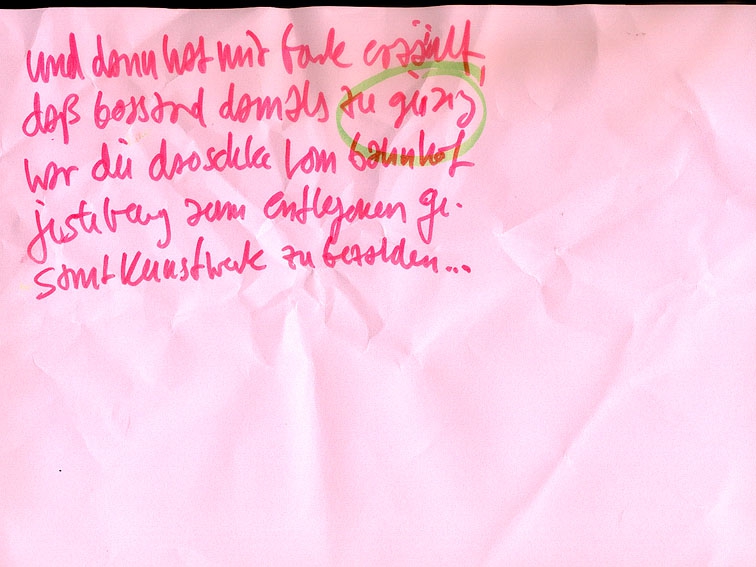 und dann hat mir fark erzählt,
daß bossard damals zu geizig
war die droschke vom bahnhof
jesteburg zum entlegenen ge-
samtkunstwerk zu bezahlen...